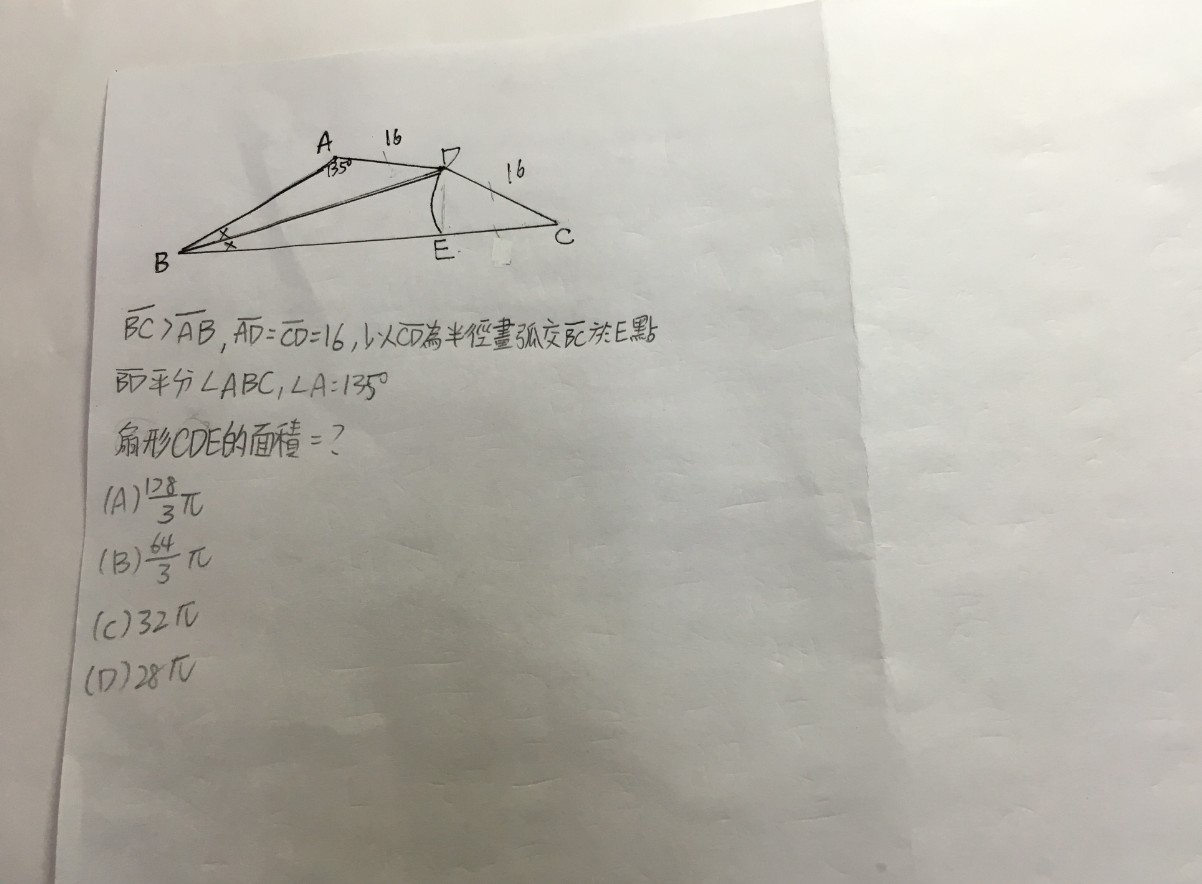 A
16
D
135°
16
x
x
B
E
C
BC>AB, AD=CD=16, 以CD為半徑畫弧交BC於E點
BD平分∠ABC, ∠A=135°
扇形CDE的面積=?
(A) 128/3 π
(B) 64/3 π
(C) 32π
(D) 28π